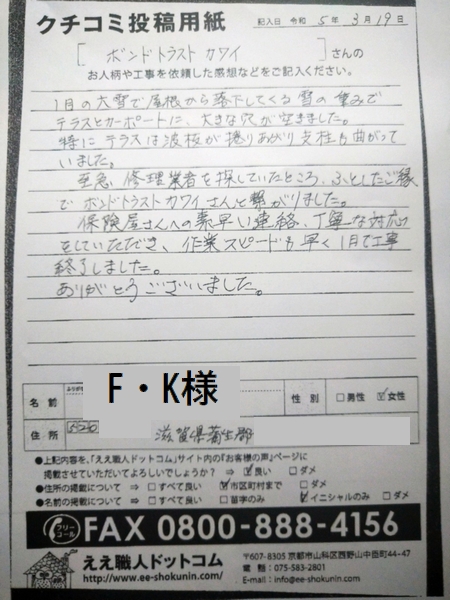 クチコミ投稿用紙
記入日 令和 5年 3月 19日
[ ボンドトラスト カワイ ]さんの
お人柄や工事を依頼した感想などをご記入ください。
1月の大雪で屋根から落下してくる雪の重みで
テラスとカーポートに、大きな穴が空きました。
特にテラスは波板が捲りあがり支柱も曲がって
いました。
至急、修理業者を探していたところ、ふとしたご縁
で ボンドトラスト カワイさんと繋がりました。
保険屋さんへの素早い連絡、丁寧な対応
をしていただき、作業スピードも早く1日で工事
終了しました。
ありがとうございました。
名前
F・K様
性別
□男性 ☑女性
住所
滋賀県蒲生郡
●上記内容を、「ええ職人ドットコム」サイト内の『お客様の声』ページに
掲載させていただいてよろしいでしょうか？ ⇒ ☑良い □ダメ
●住所の掲載について ⇒ □すべて良い ☑市区町村まで □ダメ
●名前の掲載について ⇒ □すべて良い □苗字のみ ☑イニシャルのみ □ダメ
フリーコール
FAX 0800-888-4156
ええ職人ドットコム
http://www.ee-shokunin.com/
〒607-8305 京都市山科区西野山中臣町44-47
電話：075-583-2801
E-mail：info@ee-shokunin.com